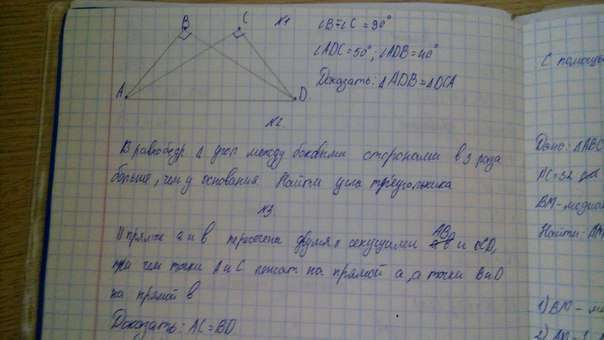 B C N1 ∠B=∠C=90°
∠ADC=50°; ∠ADB=40°
A D Доказать: ΔADB=ΔDCA
N2
В равнобедр Δ угол между боковыми сторонами в 3 раза
больше, чем у основания. Найти углы треугольника
N3
прямые a и b пересечена двумя секущими AB и CD,
при чем точки A и C лежат на прямой a, а точки B и D
на прямой b
Доказать: AC=BD
С помощью
Дано: ΔABC
AC=32
BM-медиана
Найти:
1) BM-
2)